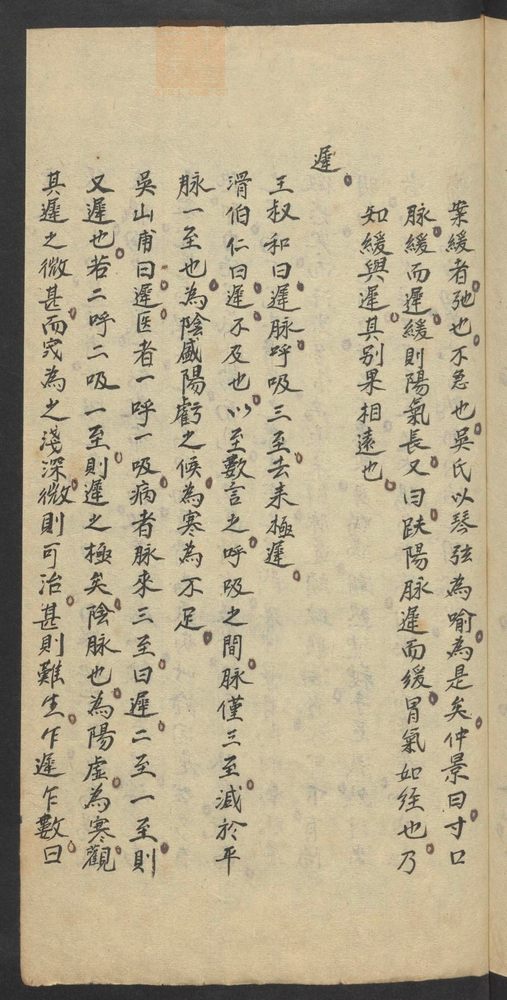 案緩者弛也不急也吳氏以琴弦為喻為是矣仲景曰寸口
脉緩而遲緩則陽氣長又曰趺陽脉遲而緩胃氣如經也乃
知緩與遲其別果相遠也
遲
王叔和曰遲脉呼吸三至去來極遲
滑伯仁曰遲不及也以至數言之呼吸之間脉僅三至減於平
脉一至也為陰盛陽虧之候為寒為不足
吳山甫曰遲医者一呼一吸病者脉來三至曰遲二至一至則
又遲也若二呼二吸一至則遲之極矣陰脉也為陽虛為寒觀
其遲之微甚而寒為之淺深微則可治甚則難生乍遲乍數曰